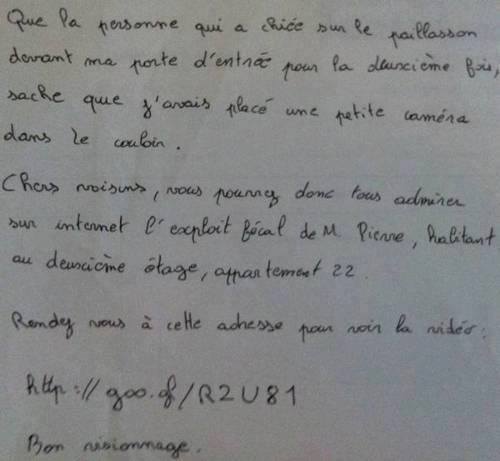 Que la personne qui a chiée sur le paillasson
devant ma porte d'entrée pour la deuxième fois,
sache que j'avais placé une petite caméra
dans le couloir.
Chers voisins, vous pourrez donc tous admirer
sur internet l'exploit fécal de M. Pierre, habitant
au deuxième étage, appartement 22.
Rendez vous à cette adresse pour voir la vidéo :
http://goo.gl/R2U81
Bon visionnage.